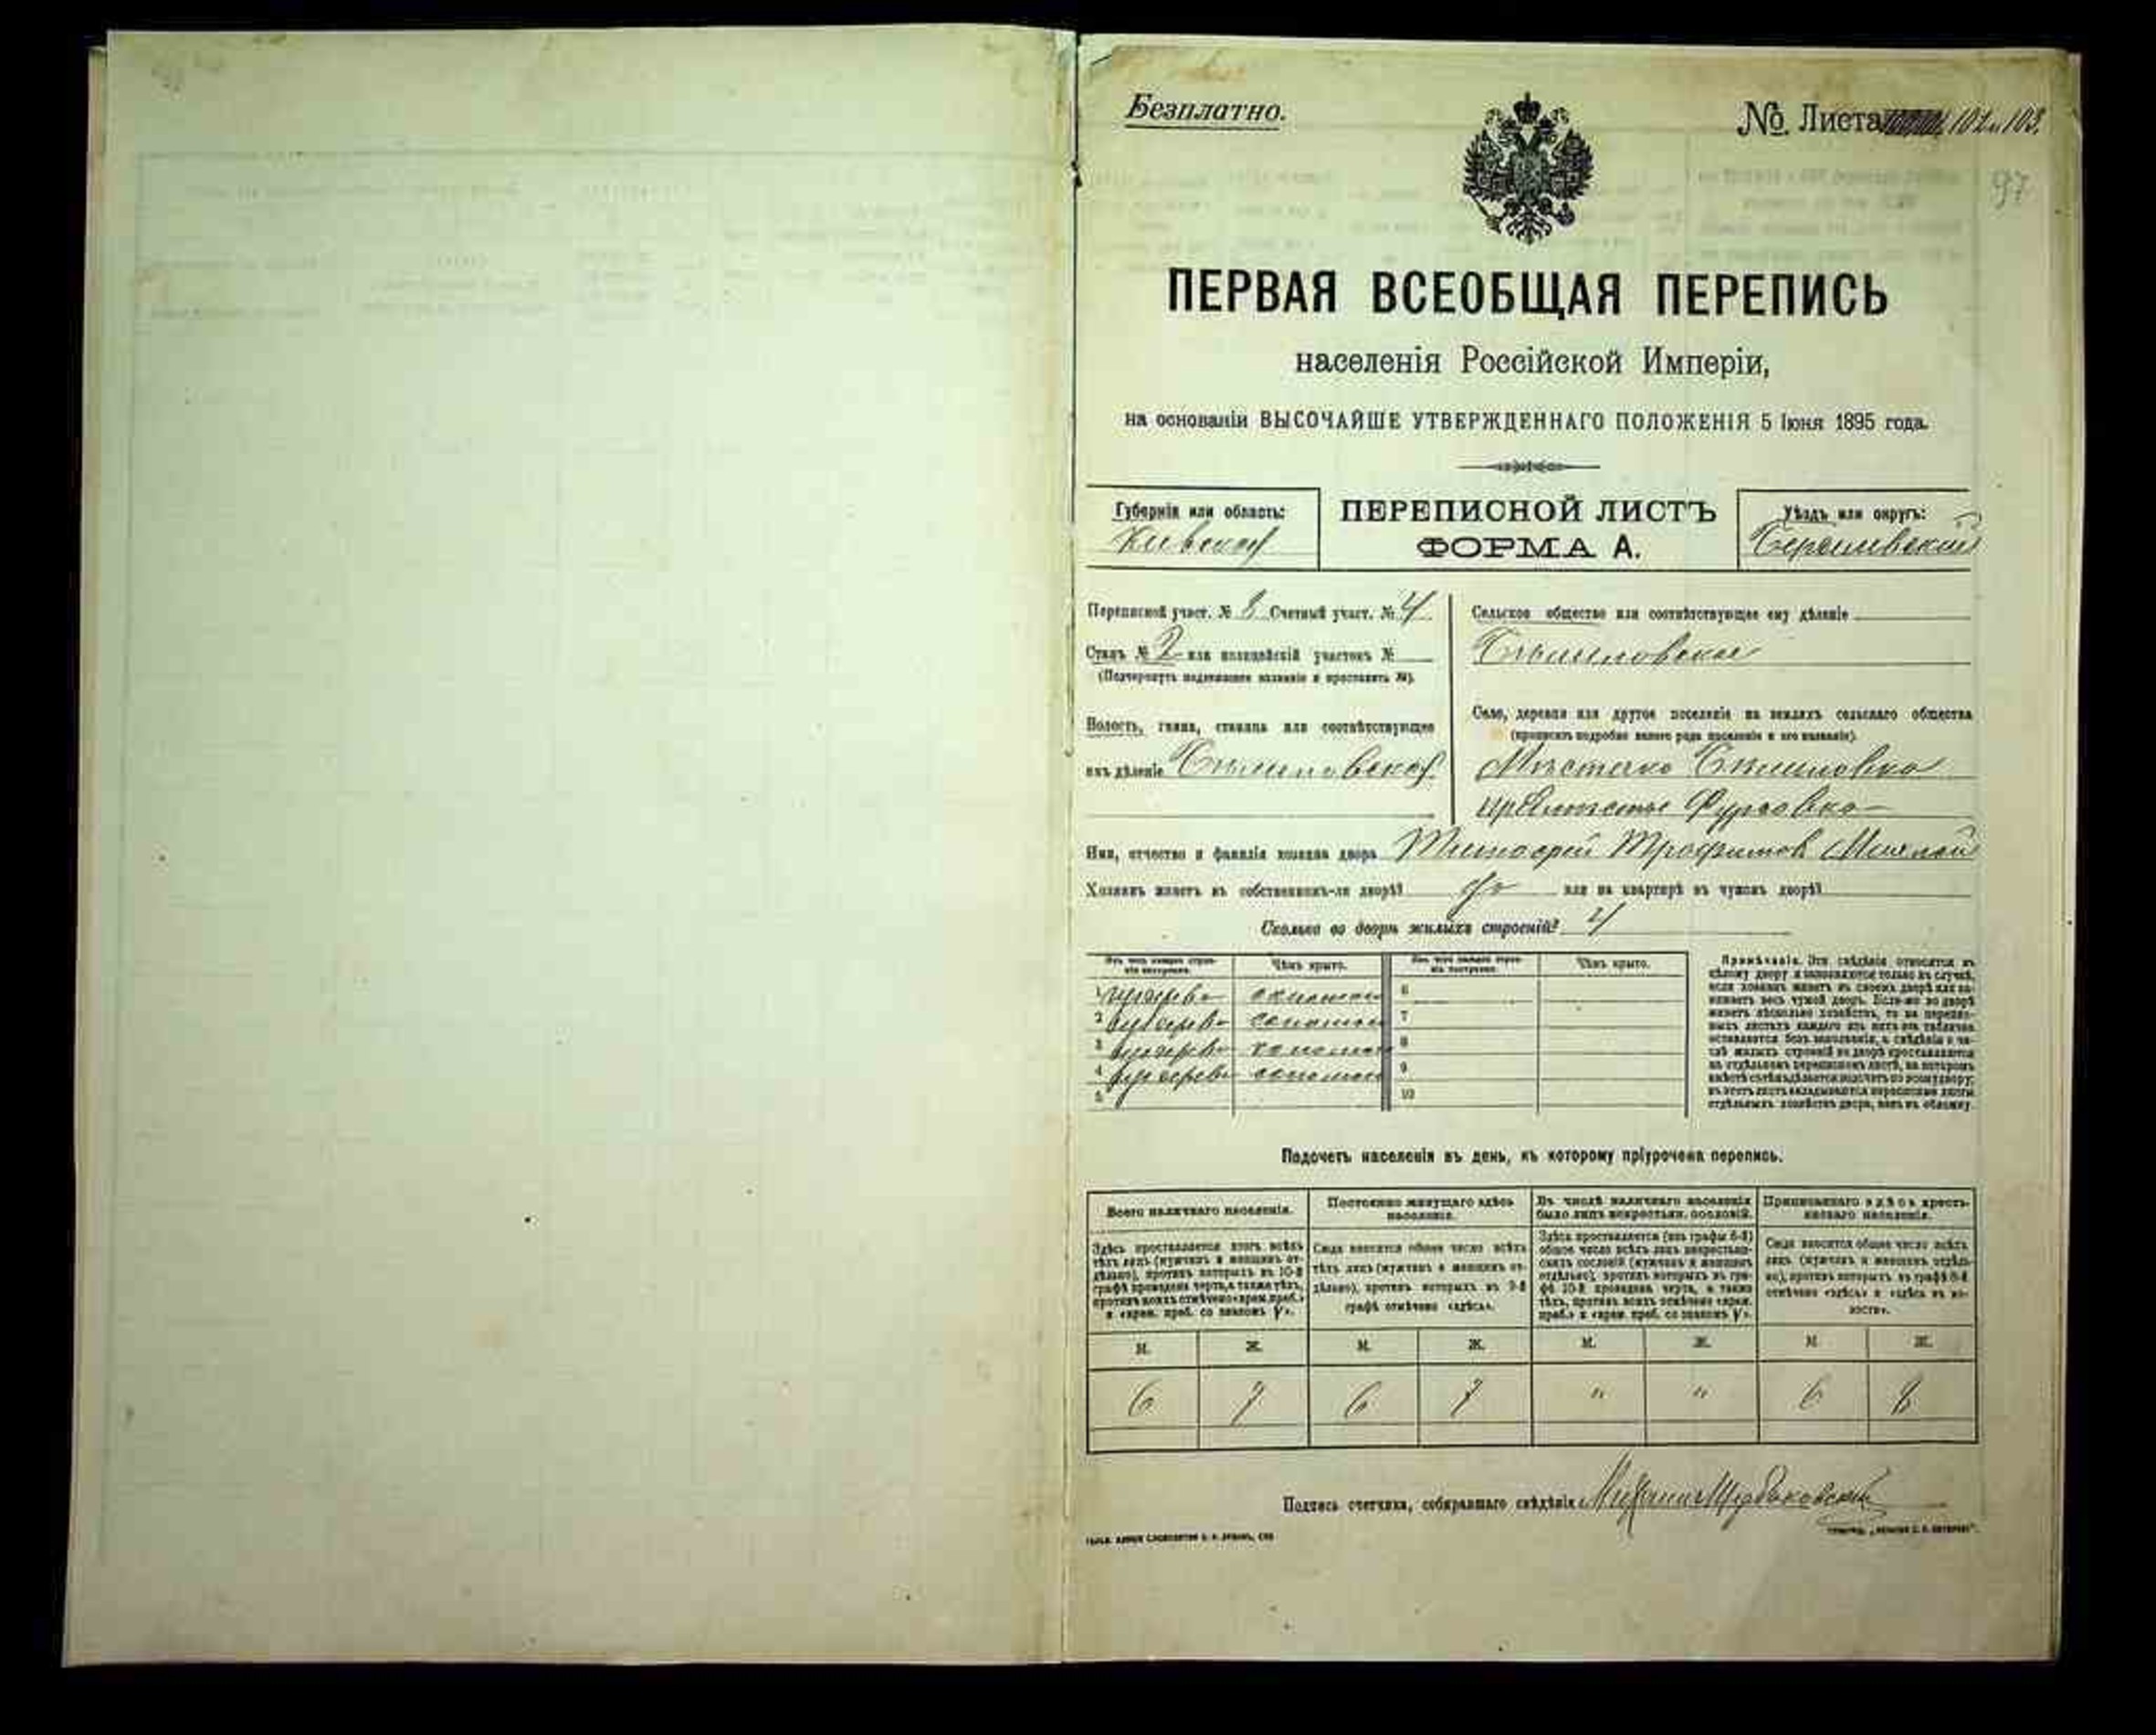 Безплатно.
№ Листа 102 и 103.
97
ПЕРВАЯ ВСЕОБЩАЯ ПЕРЕПИСЬ
населенія Россійской Имперіи,
на основаніи ВЫСОЧАЙШЕ УТВЕРЖДЕННАГО ПОЛОЖЕНІЯ 5 Іюня 1895 года.
Губернія или область:
Кіевская
ПЕРЕПИСНОЙ ЛИСТЪ
ФОРМА А.
Уѣздъ или округъ:
Бердичевскій
Переписной участ. № 8 Счетный участ. № 4
Станъ № 2 или полицейскій участокъ №
(Подчеркнуть надлежащее названіе и проставить №).
Волость, гмина, станица или соотвѣтствующее
имъ дѣленіе Бѣлиловская
Сельское общество или соотвѣтствующее ему дѣленіе
Бѣлиловское
Село, деревня или другое поселеніе на земляхъ сельскаго общества
(прописать подробно какого рода поселеніе и его названіе).
Мѣстечко Бѣлиловка
Имя, отчество и фамилія хозяина двора Тимофей Трофимов
Хозяинъ живетъ въ собственномъ-ли дворѣ? да или на квартирѣ въ чужомъ дворѣ?
Сколько во дворѣ жилыхъ строеній? 4
Изъ чего каждое строеніе построено.
Чѣмъ крыто.
Изъ чего каждое строеніе построено.
Чѣмъ крыто.
1 соломой 6
2 соломой 7
3 соломой 8
4 соломой 9
5 10
Примѣчаніе. Эти свѣдѣнія относятся къ
цѣлому двору и заполняются только въ случаѣ,
если хозяинъ живетъ въ своемъ дворѣ или за-
нимаетъ весь чужой дворъ. Если-же во дворѣ
живетъ нѣсколько хозяйствъ, то на перепис-
ныхъ листахъ каждаго изъ нихъ эта табличка
оставляется безъ заполненія, а свѣдѣнія о чи-
слѣ жилыхъ строеній во дворѣ проставляются
на отдѣльномъ переписномъ листѣ, на которомъ
вмѣстѣ съ тѣмъ дѣлается подсчетъ по всему двору;
въ этотъ листъ вкладываются переписные листы
отдѣльныхъ хозяйствъ двора, какъ въ обложку.
Подсчетъ населенія въ день, къ которому пріурочена перепись.
Всего наличнаго населенія.
Постоянно живущаго здѣсь населенія.
Въ числѣ наличнаго населенія было лицъ некрестьян. сословій.
Приписаннаго здѣсь крестьянскаго населенія.
Здѣсь проставляется итогъ всѣхъ
тѣхъ лицъ (мужчинъ и женщинъ от-
дѣльно), противъ которыхъ въ 10-й
графѣ проведена черта, а также тѣхъ,
противъ коихъ отмѣчено «врем. преб.»
и «врем. преб. со знакомъ V».
Сюда вносится общее число всѣхъ
тѣхъ лицъ (мужчинъ и женщинъ от-
дѣльно), противъ которыхъ въ 9-й
графѣ отмѣчено «здѣсь».
Здѣсь проставляется (изъ графы 6-й)
общее число всѣхъ лицъ некрестьян-
скихъ сословій (мужчинъ и женщинъ
отдѣльно), противъ которыхъ въ гра-
фѣ 10-й проведена черта, а также
тѣхъ, противъ коихъ отмѣчено «врем.
преб.» и «врем. преб. со знакомъ V».
Сюда вносится общее число всѣхъ
лицъ (мужчинъ и женщинъ отдѣль-
но), противъ которыхъ въ графѣ 8-й
отмѣчено «здѣсь» и «здѣсь въ во-
лости».
М. Ж. М. Ж. М. Ж. М. Ж.
6 7 6 7 " " 6 8
Подпись счетчика, собиравшаго свѣдѣнія Михаилъ Щербаковскій